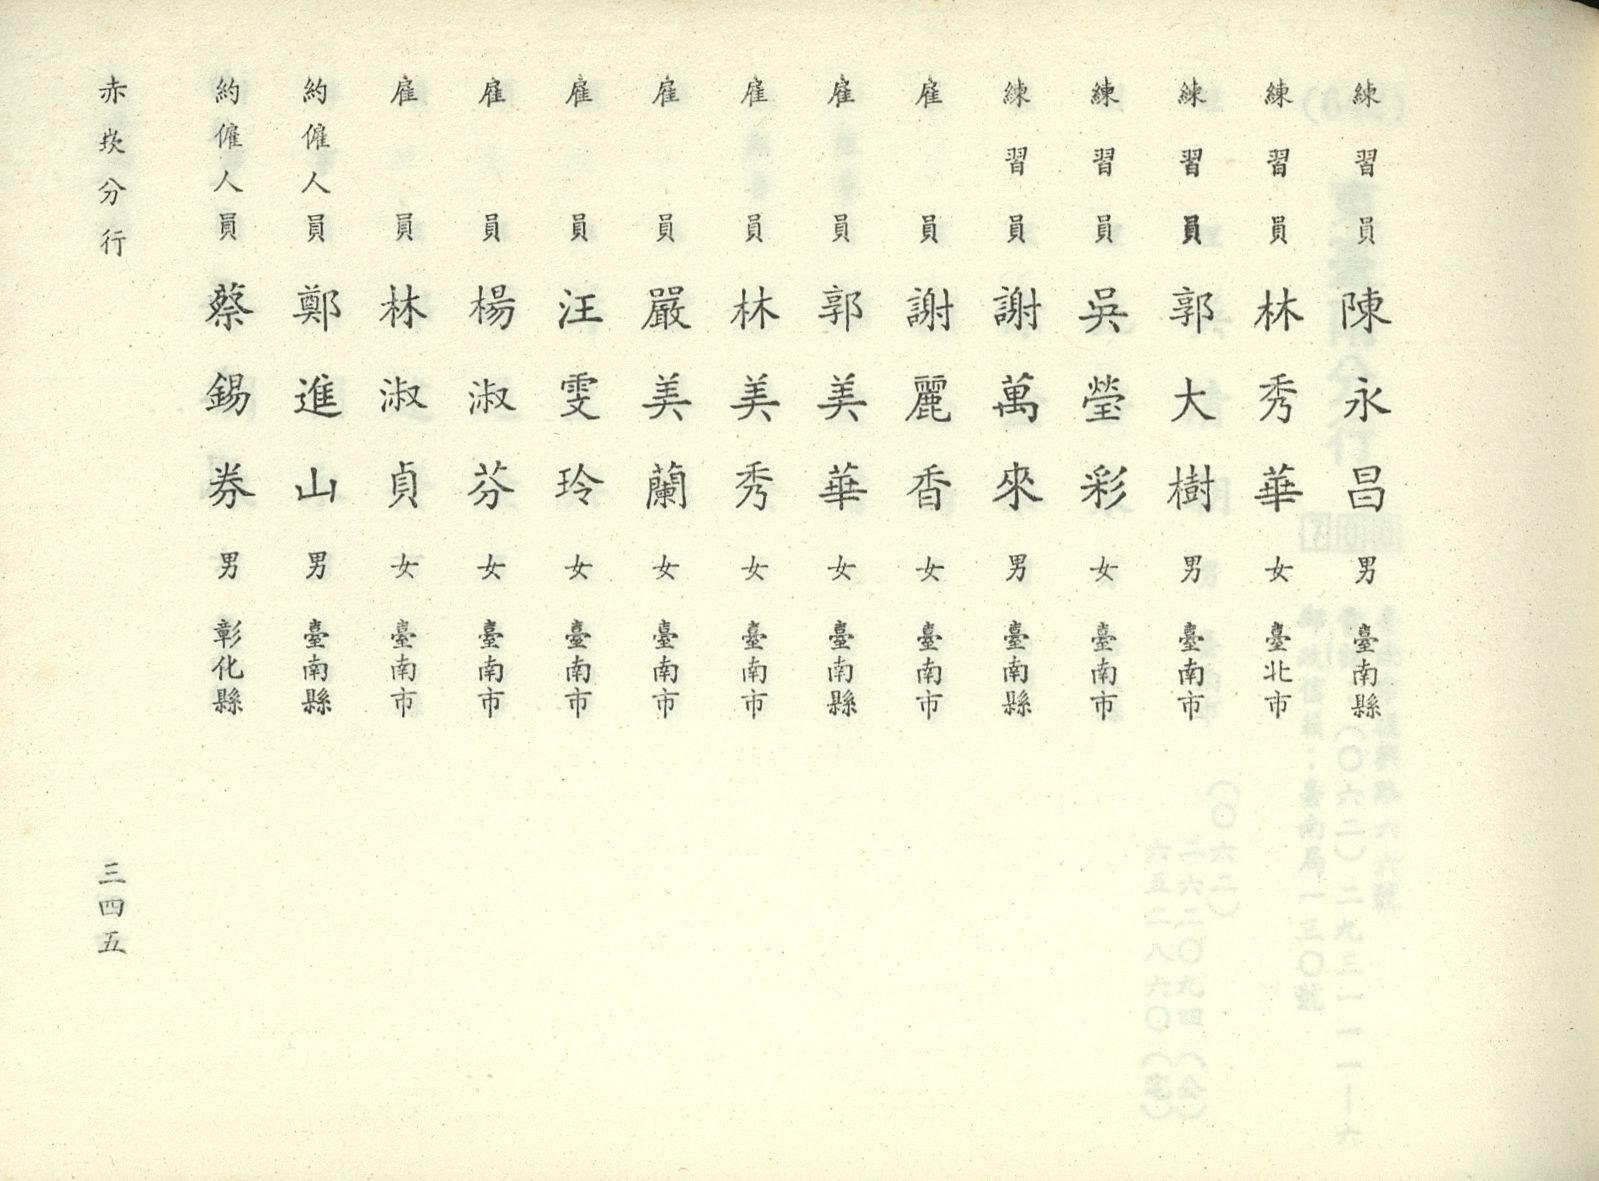 練習員 陳永昌 男 臺南縣
練習員 林秀華 女 臺北市
練習員 郭大樹 男 臺南市
練習員 吳瑩彩 女 臺南市
練習員 謝萬來 男 臺南縣
雇員 謝麗香 女 臺南市
雇員 郭美華 女 臺南縣
雇員 林美秀 女 臺南市
雇員 嚴美蘭 女 臺南市
雇員 汪雯玲 女 臺南市
雇員 楊淑芬 女 臺南市
雇員 林淑貞 女 臺南市
約僱人員 鄭進山 男 臺南縣
約僱人員 蔡錫券 男 彰化縣
赤崁分行 三四五